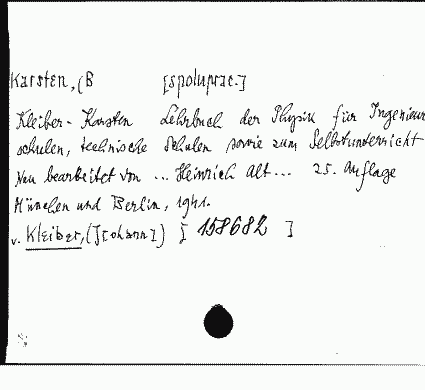 Karsten, (B [spoluprac.]
Kleiber-Karsten Lehrbuch der Physik für Ingenieur
schulen, technische Schulen sowie zum Selbstunterricht
Neu bearbeitet von ... Heinrich Alt ... 25. Auflage
München und Berlin, 1941.
v. Kleiber, (J[ohann]) [ 158682 ]